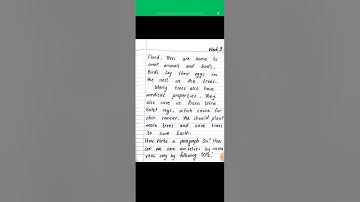 Week 3
food. They are home to
small animals and birds.
Birds lay their eggs in
the nest on the trees.
Many trees also have
medical properties. They
also save us from Ultra
Violet rays, which cause for
skin cancer. We should plant
more trees and save trees
to save Earth.
H.W. Write a paragraph on "How
can we save ourselves by
only by following